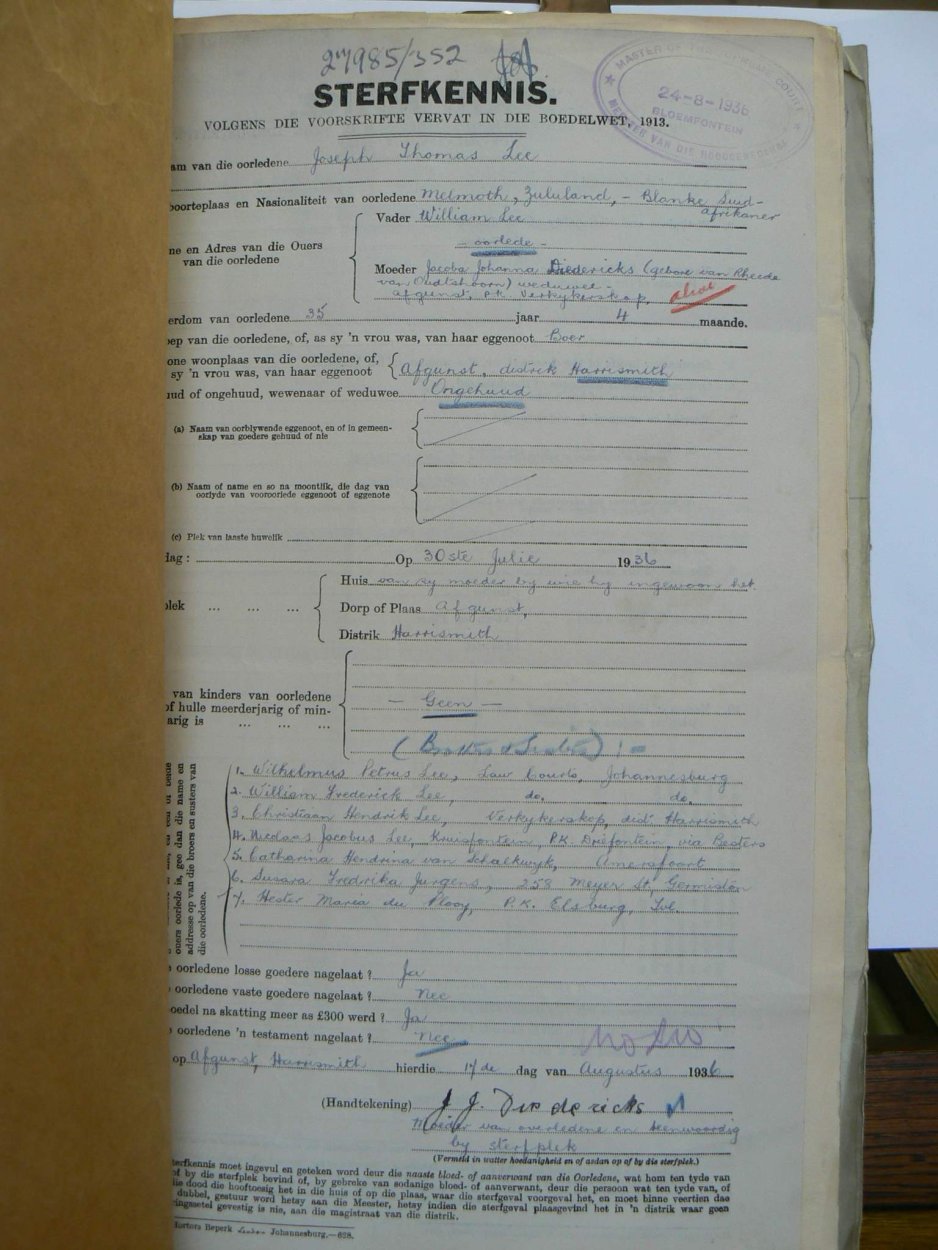 27985/352
STERFKENNIS.
VOLGENS DIE VOORSKRIFTE VERVAT IN DIE BOEDELWET, 1913.
MASTER OF THE SUPREME COURT
24-8-1936
BLOEMFONTEIN
MEESTER VAN DIE HOOGGEREGSHOF
am van die oorledene Joseph Thomas Lee
boorteplaas en Nasionaliteit van oorledene Melmoth, Zululand, - Blanke Suid-
afrikaner
Vader William Lee
- oorlede -
ne en Adres van die Ouers
van die oorledene
Moeder Jacoba Johanna Diedericks (gebore van Rheede
van Oudtshoorn) weduwee -
Afgunst, P.K. Verkykerskop, alive
erdom van oorledene 35 jaar 4 maande.
ep van die oorledene, of, as sy 'n vrou was, van haar eggenoot Boer
one woonplaas van die oorledene, of,
sy 'n vrou was, van haar eggenoot Afgunst, distrik Harrismith
ud of ongehuud, wewenaar of weduwee Ongehuud
(a) Naam van oorblywende eggenoot, en of in gemeen-
skap van goedere gehuud of nie
(b) Naam of name en so na moontlik, die dag van
oorlyde van vooroorlede eggenoot of eggenote
(c) Plek van laaste huwelik
dag: Op 30ste Julie 1936
Huis van sy moeder by wie hy ingewoon het
plek ... ... ... Dorp of Plaas Afgunst,
Distrik Harrismith
van kinders van oorledene
of hulle meerderjarig of min-
arig is ... ... ...
- Geen -
ouers oorlede is, gee dan die name en
addresse op van die broers en susters van
die oorledene.
1. Wilhelmus Petrus Lee, Law Courts, Johannesburg
2. William Frederick Lee, do. do.
3. Christiaan Hendrik Lee, Verkykerskop, dist. Harrismith
4. Nicolaas Jacobus Lee, Kruisfontein, P.K. Driefontein, via Besters
5. Catharina Hendrina van Schalkwyk, Amersfoort
6. Susara Fredrika Jurgens, 258 Meyer St, Germiston
7. Hester Maria du Plooy, P.K. Elsburg, Tvl.
oorledene losse goedere nagelaat? Ja
oorledene vaste goedere nagelaat? Nee
oedel na skatting meer as £300 werd? Ja
oorledene 'n testament nagelaat? Nee
op Afgunst, Harrismith hierdie 17de dag van Augustus 1936
(Handtekening) J J. Diedericks
Moeder van overledene en teenwoordig
by sterfplek
(Vermeld in watter hoedanigheid en of asdan op of by die sterfplek.)
terfkennis moet ingevul en geteken word deur die naaste bloed- of aanverwant van die Oorledene, wat hom ten tyde van
of by die sterfplek bevind of, by gebreke van sodanige bloed- of aanverwant, deur die persoon wat ten tyde van, of
die dood die hooftoesig het in die huis of op die plaas, waar die sterfgeval voorgeval het, en moet binne veertien dae
dubbel, gestuur word hetsy aan die Meester, hetsy indien die sterfgeval plaasgevind het in 'n distrik waar geen
ringsetel gevestig is nie, aan die magistraat van die distrik.
Hortors Beperk Johannesburg.—628.